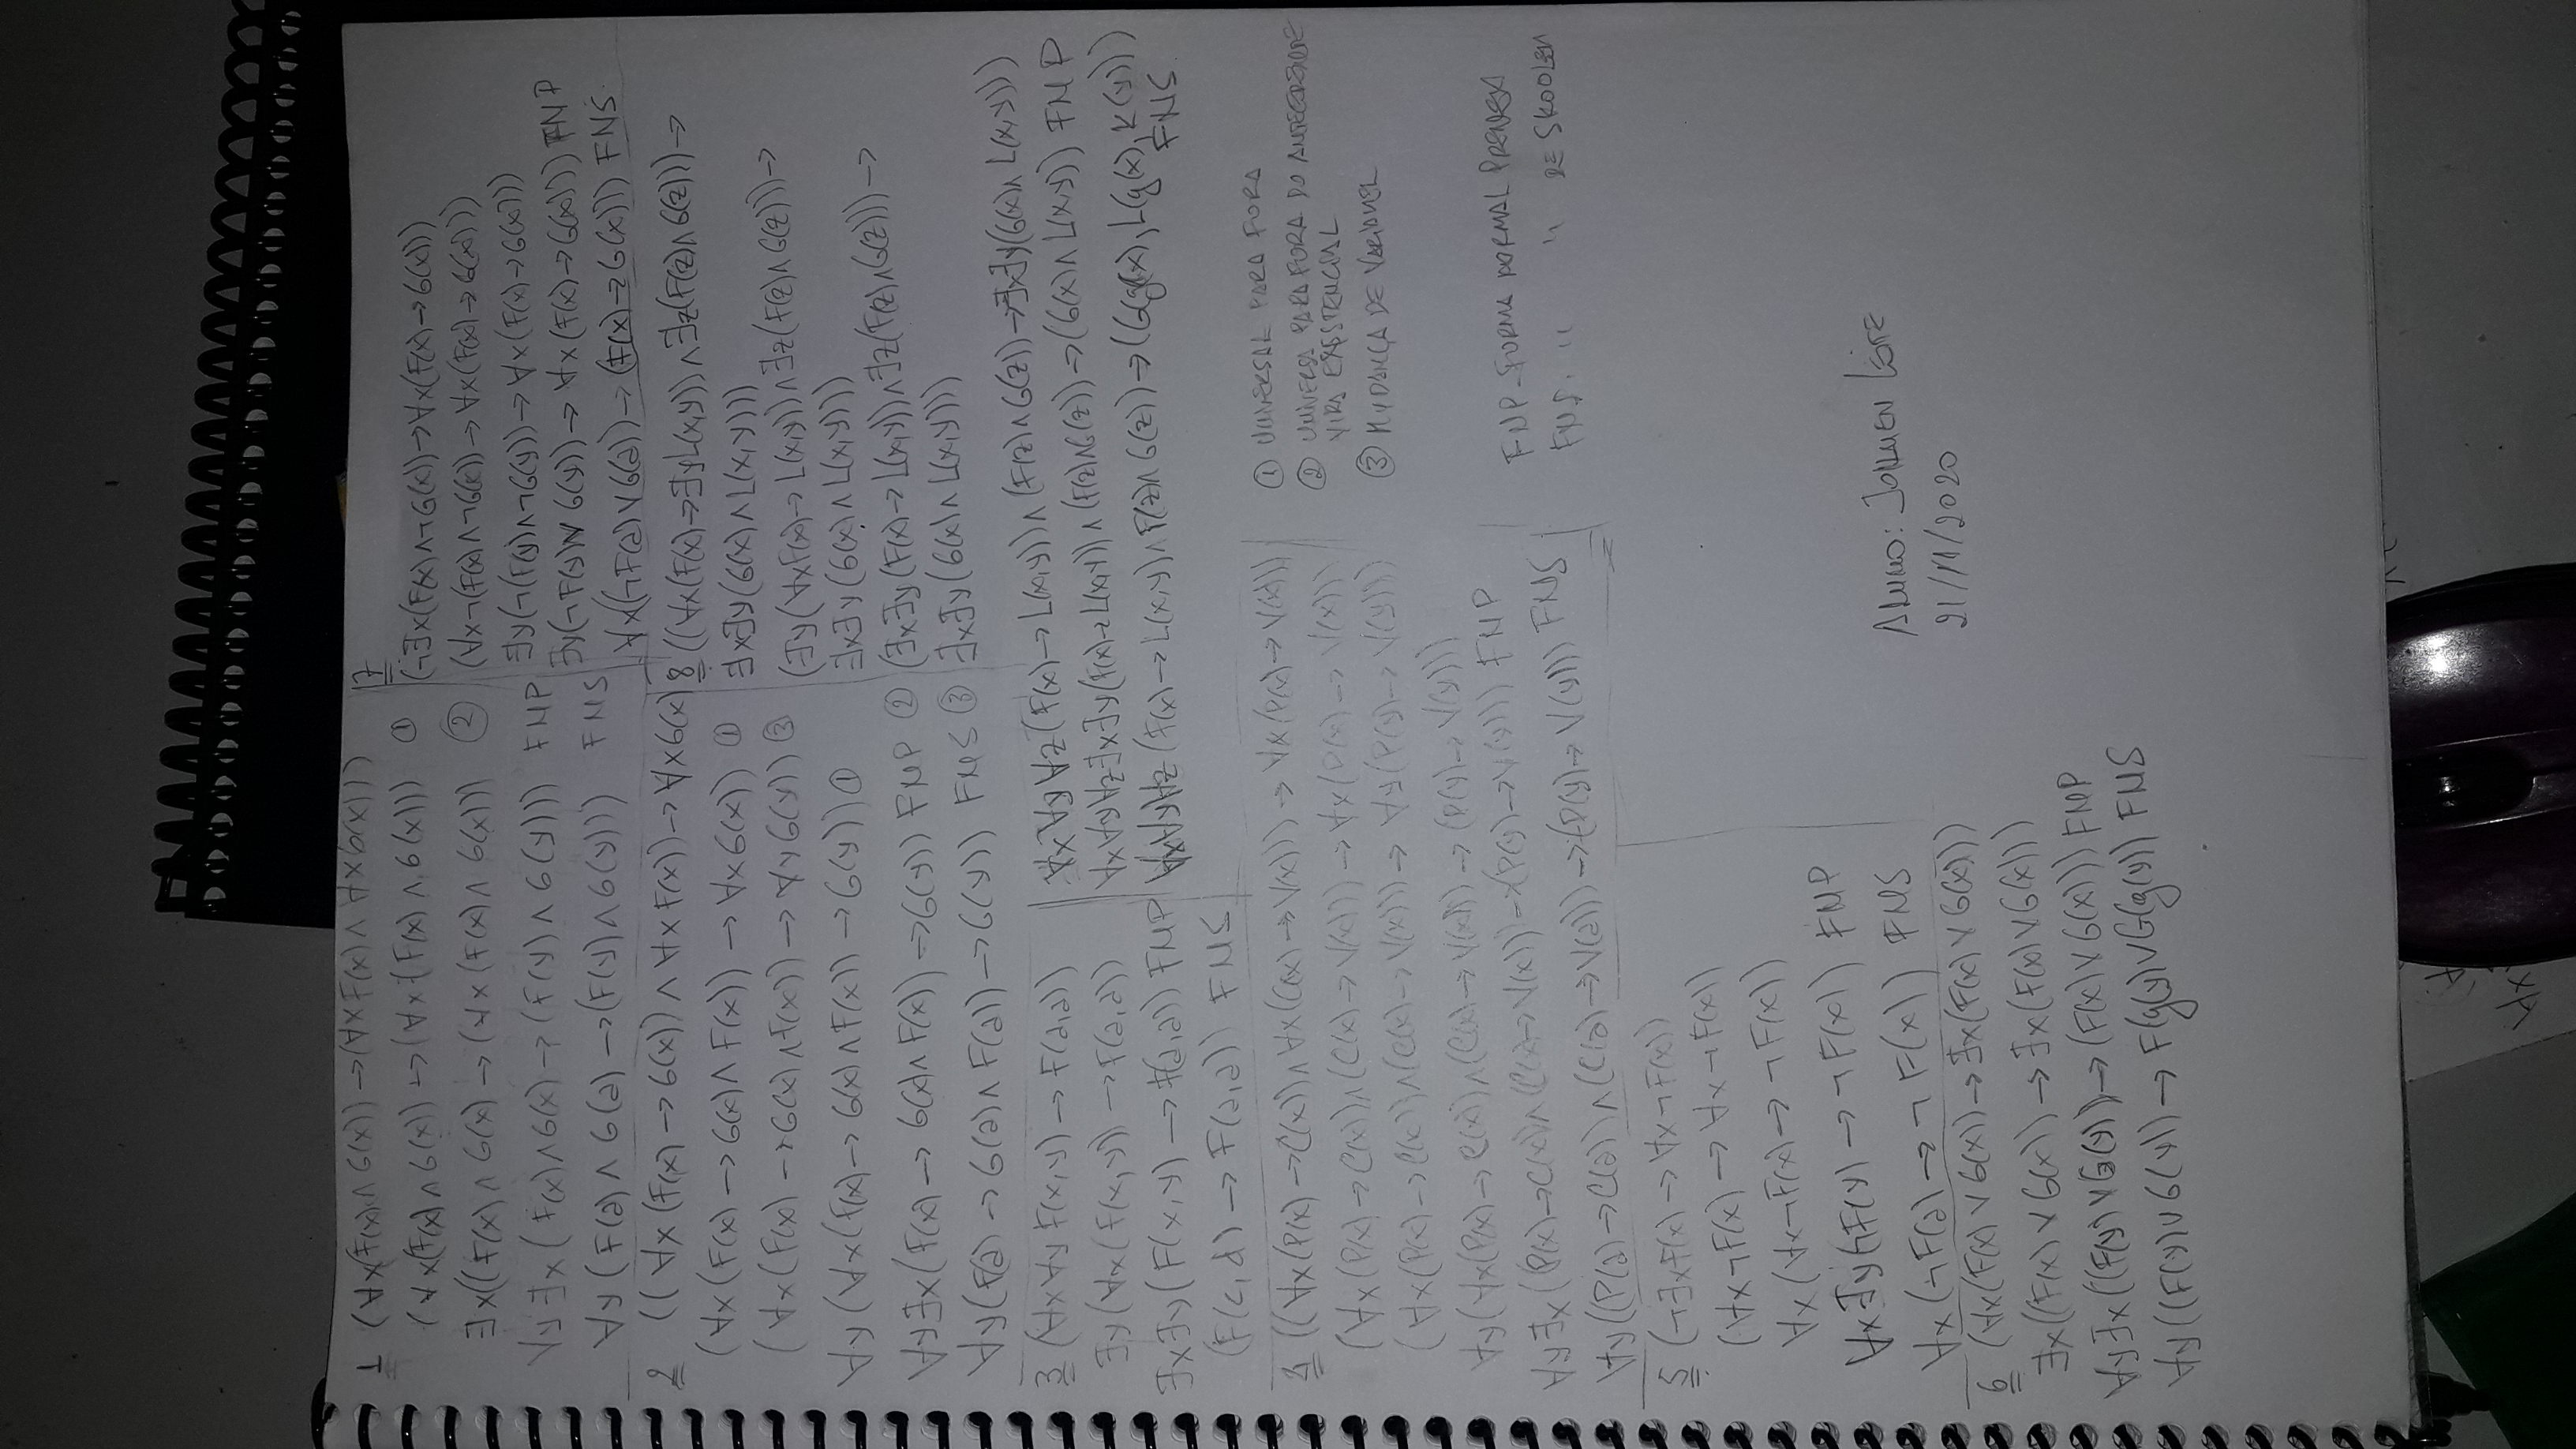 1 (∀x(F(x)∧G(x))→(∀xF(x)∧∀xG(x)))
(∀x(F(x)∧G(x))→(∀x(F(x)∧G(x))) ①
∃x((F(x)∧G(x)→(∀x(F(x)∧G(x))) ②
∀y∃x(F(x)∧G(x)→(F(y)∧G(y))) FNP
∀y(F(a)∧G(a)→(F(y)∧G(y))) FNS
2 ((∀x(F(x)→G(x))∧∀xF(x))→∀xG(x)
(∀x(F(x)→G(x)∧F(x))→∀xG(x)) ①
(∀x(F(x)→G(x)∧F(x))→∀yG(y)) ③
∀y(∀x(F(x)→G(x)∧F(x))→G(y)) ①
∀y∃x(F(x)→G(x)∧F(x))→G(y)) FNP ②
∀y(F(a)→G(a)∧F(a))→G(y)) FNS ③
3 (∀x∀yF(x,y)→F(a,a))
∃y(∀x(F(x,y))→F(a,a))
∃x∃y(F(x,y)→F(a,a)) FNP
(F(c,d)→F(a,a)) FNS
4 ((∀x(P(x)→C(x))∧∀x(C(x)→V(x)))→∀x(P(x)→V(x)))
(∀x(P(x)→C(x))∧(C(x)→V(x)))→∀x(P(x)→V(x)))
(∀x(P(x)→C(x))∧(C(x)→V(x)))→∀y(P(y)→V(y)))
∀y(∀x(P(x)→C(x))∧(C(x)→V(x)))→(P(y)→V(y)))
∀y∃x((P(x)→C(x))∧(C(x)→V(x))→(P(y)→V(y))) FNP
∀y((P(a)→C(a))∧(C(a)→V(a)))→(P(y)→V(y))) FNS
5 (¬∃xF(x)→∀x¬F(x))
(∀x¬F(x)→∀x¬F(x))
∀x(∀x¬F(x)→¬F(x))
∀x∃y(¬F(y)→¬F(x)) FNP
∀x(¬F(a)→¬F(x)) FNS
6 (∀x(F(x)∨G(x))→∃x(F(x)∨G(x)))
∃x((F(x)∨G(x))→∃x(F(x)∨G(x)))
∀y∃x((F(y)∨G(y))→(F(x)∨G(x))) FNP
∀y((F(y)∨G(y))→F(g(y)∨G(g(y)) FNS
7
(¬∃x(F(x)∧¬G(x))→∀x(F(x)→G(x)))
(∀x¬(F(x)∧¬G(x))→∀x(F(x)→G(x)))
∃y(¬(F(y)∧¬G(y))→∀x(F(x)→G(x)))
∃y(¬F(y)∨G(y))→∀x(F(x)→G(x))) FNP
∀x(¬F(a)∨G(a))→(F(x)→G(x))) FNS
8 ((∀x(F(x)→∃yL(x,y))∧∃z(F(z)∧G(z)))→
∃x∃y(G(x)∧L(x,y)))
(∃y(∀xF(x)→L(x,y))∧∃z(F(z)∧G(z)))→
∃x∃y(G(x)∧L(x,y)))
(∃x∃y(F(x)→L(x,y))∧∃z(F(z)∧G(z)))→
∃x∃y(G(x)∧L(x,y)))
∀x∀y∀z(F(x)→L(x,y))∧(F(z)∧G(z))→∃x∃y(G(x)∧L(x,y)))
∀x∀y∀z∃x∃y(F(x)→L(x,y))∧(F(z)∧G(z))→(G(x)∧L(x,y)) FNP
∀x∀y∀z(F(x)→L(x,y)∧F(z)∧G(z))→(G(g(x),L(g(x),K(y)))
FNS
① UNIVERSAL PARA FORA
② UNIVERSA PARA FORA DO ANTECEDENTE
VIRA EXISTENCIAL
③ MUDANÇA DE VARIAVEL
FNP-FORMA NORMAL PRENEX
FNS. " " DE SKOOLEM
Aluno: Leite
21/11/2020